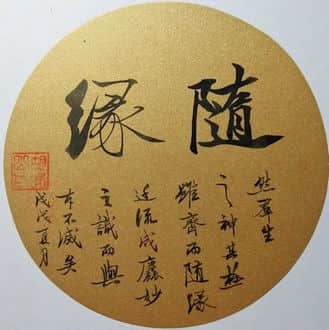 隨緣
然羣生
之神其極
雖齊而隨緣
遷流成麤妙
之識而與
本不滅矣
戊戌夏月